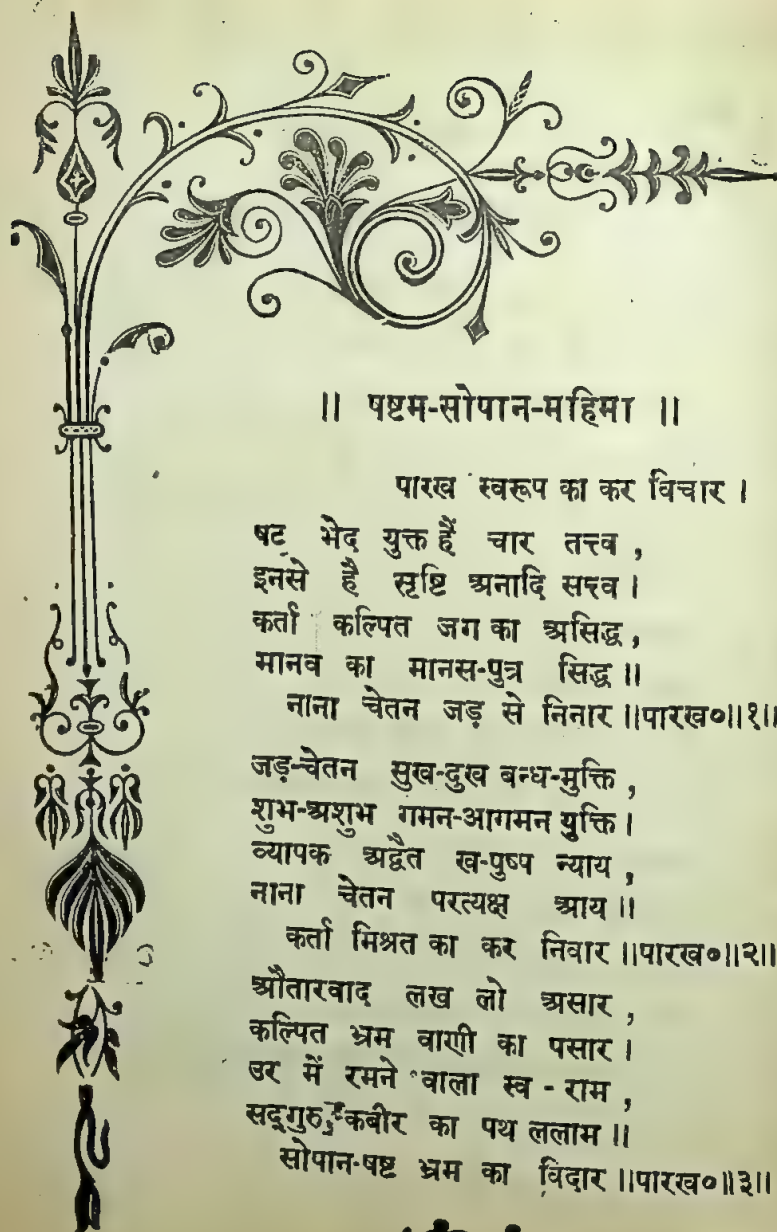 ॥ षष्टम-सोपान-महिमा ॥
पारख स्वरूप का कर विचार ।
षट भेद युक्त हैं चार तत्त्व ,
इनसे है सृष्टि अनादि सत्त्व ।
कर्ता कल्पित जग का असिद्ध ,
मानव का मानस-पुत्र सिद्ध ॥
नाना चेतन जड़ से निनार ॥पारख०॥१॥
जड़-चेतन सुख-दुख बन्ध-मुक्ति ,
शुभ-अशुभ गमन-आगमन युक्ति ।
व्यापक अद्वैत ख-पुष्प न्याय ,
नाना चेतन परत्यक्ष आय ॥
कर्ता मिश्रत का कर निवार ॥पारख०॥२॥
औतारवाद लख लो असार ,
कल्पित भ्रम वाणी का पसार ।
उर में रमने वाला स्व - राम ,
सद्गुरु कबीर का पथ ललाम ॥
सोपान-षष्ट भ्रम का विदार ॥पारख०॥३॥